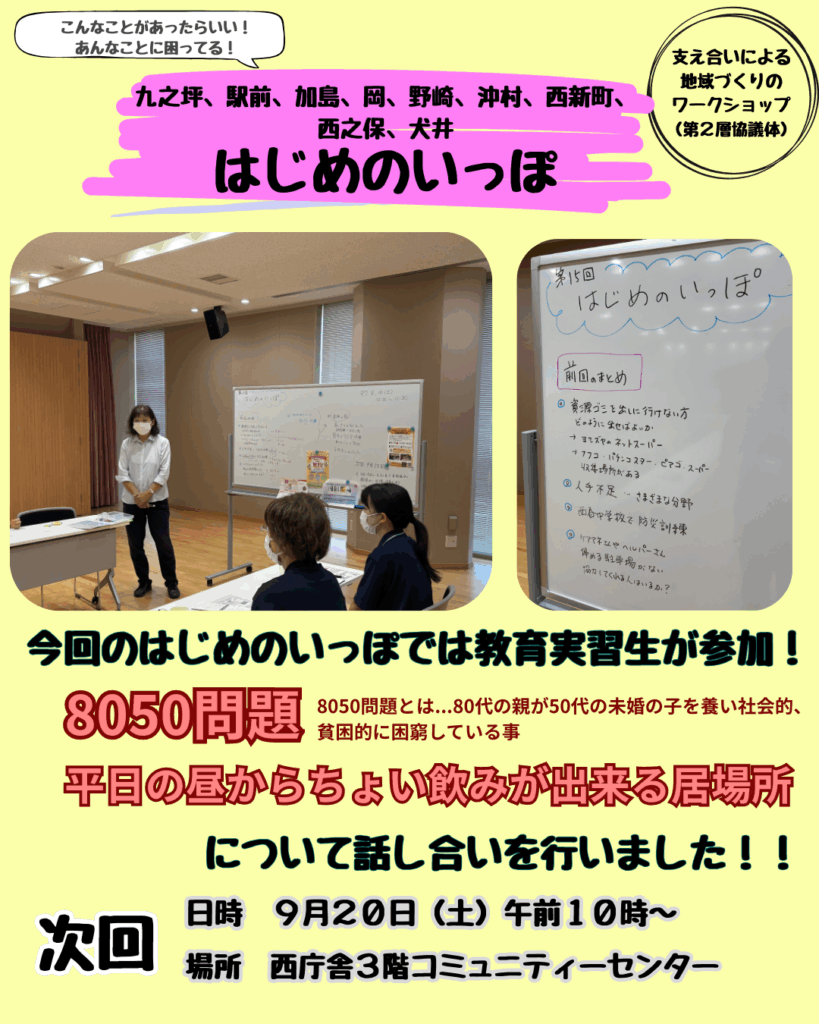 こんなことがあったらいい！
あんなことに困ってる！
支え合いによる
地域づくりの
ワークショップ
（第２層協議体）
九之坪、駅前、加島、岡、野崎、沖村、西新町、
西之保、犬井
はじめのいっぽ
はじめのいっぽ
第15回
はじめのいっぽ
前回のまとめ
資源ゴミを出しに行けない方
どのように出せばよいか
→ヨシヅヤのネットスーパー
→アフコ・バケンコスター・ピアゴ・スーパー
収集場所がある
人手不足 － さまざまな分野
西春中学校で防災訓練
ケアマネなやヘルパーさん
停める駐車場がない
今回のはじめのいっぽでは教育実習生が参加！
8050問題
8050問題とは...80代の親が50代の未婚の子を養い社会的、
貧困的に困窮している事
平日の昼からちょい飲みが出来る居場所
について話し合いを行いました！！
次回
日時　９月２０日（土）午前１０時～
場所　西庁舎３階コミュニティーセンター